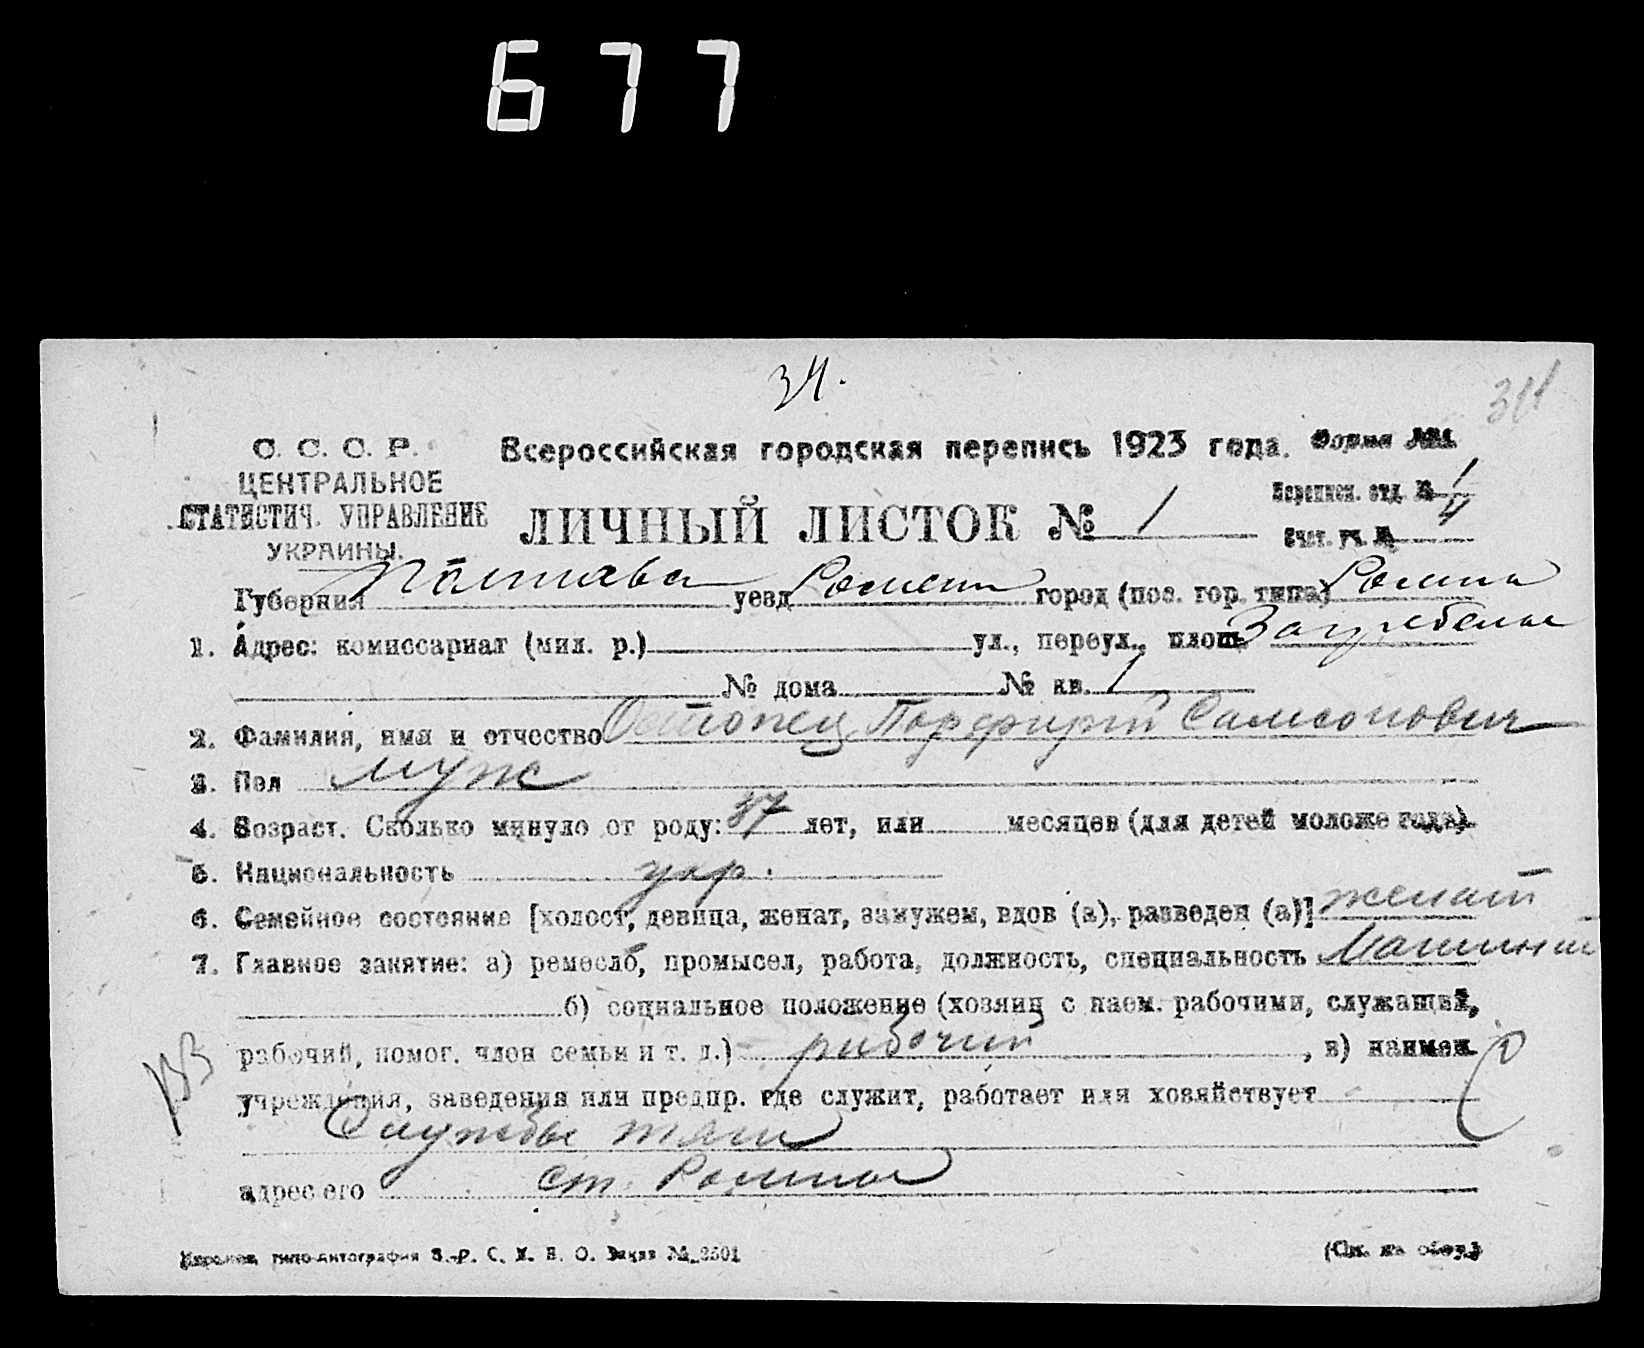 677
34.
34
С. С. С. Р.
ЦЕНТРАЛЬНОЕ
СТАТИСТИЧ. УПРАВЛЕНИЕ
УКРАИНЫ.
Всероссийская городская перепись 1923 года. Форма №1
ЛИЧНЫЙ ЛИСТОК № 1
Переписн. отд. № 1
Счет. уч. № 4
Губерния Полтава уезд Ромен город (пос. гор. типа) Ромны
1. Адрес: комиссариат (мил. р.) ул., переул., площ. Загребелье
№ дома № кв. 1
2. Фамилия, имя и отчество Остопец Порфирий Самсонович
3. Пол муж
4. Возраст. Сколько минуло от роду: 37 лет, или месяцев (для детей моложе года).
5. Национальность укр.
6. Семейное состояние [холост, девица, женат, замужем, вдов (а), разведен (а)] женат
7. Главное занятие: а) ремесло, промысел, работа, должность, специальность Машинист
б) социальное положение (хозяин с наем. рабочими, служащий,
рабочий, помог. член семьи и т. д.) рабочий , в) наимен.
учреждения, заведения или предпр. где служит, работает или хозяйствует
Службы тяги
адрес его ст. Ромны
типо-литография З.-Р. С. Х. В. О. Заказ № 2501
(См. на обор.)